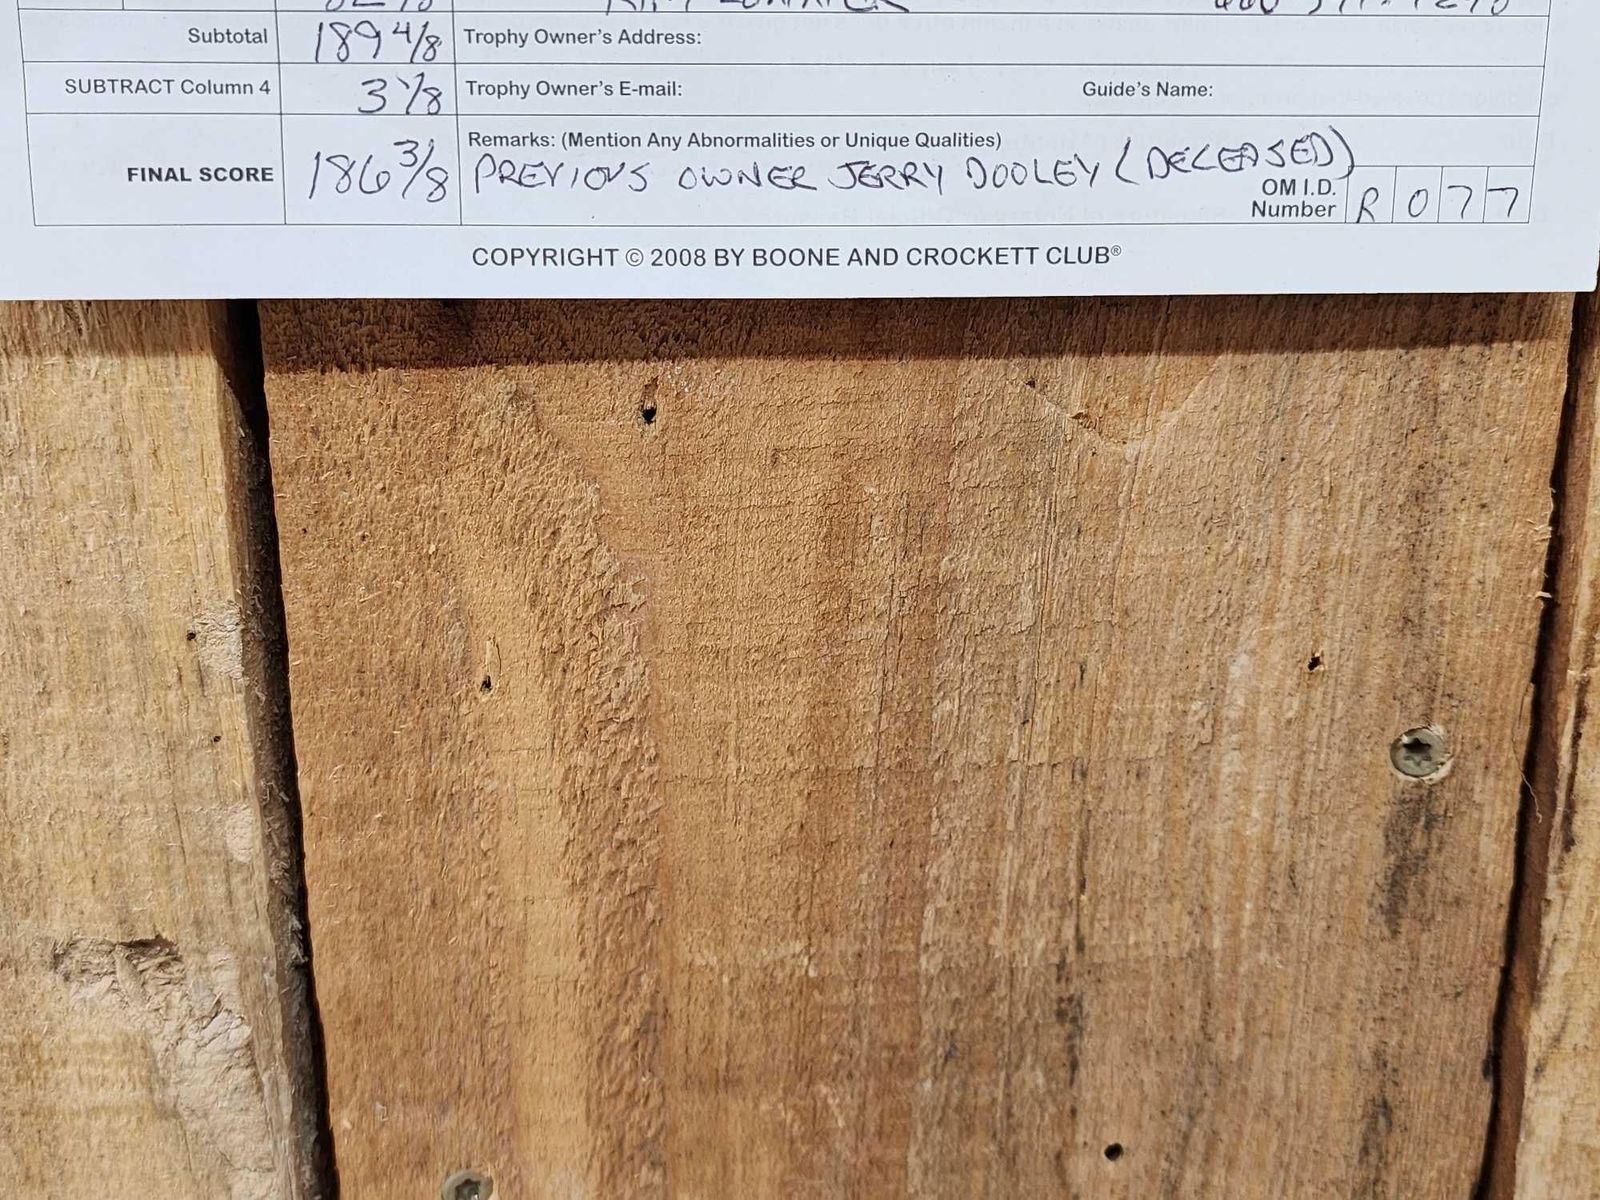 Subtotal 189 4/8 Trophy Owner's Address:
SUBTRACT Column 4 3 1/8 Trophy Owner's E-mail: Guide's Name:
Remarks: (Mention Any Abnormalities or Unique Qualities)
FINAL SCORE 186 3/8 PREVIOUS OWNER JERRY DOOLEY (DECEASED)
OM I.D.
Number R 0 7 7
COPYRIGHT © 2008 BY BOONE AND CROCKETT CLUB®